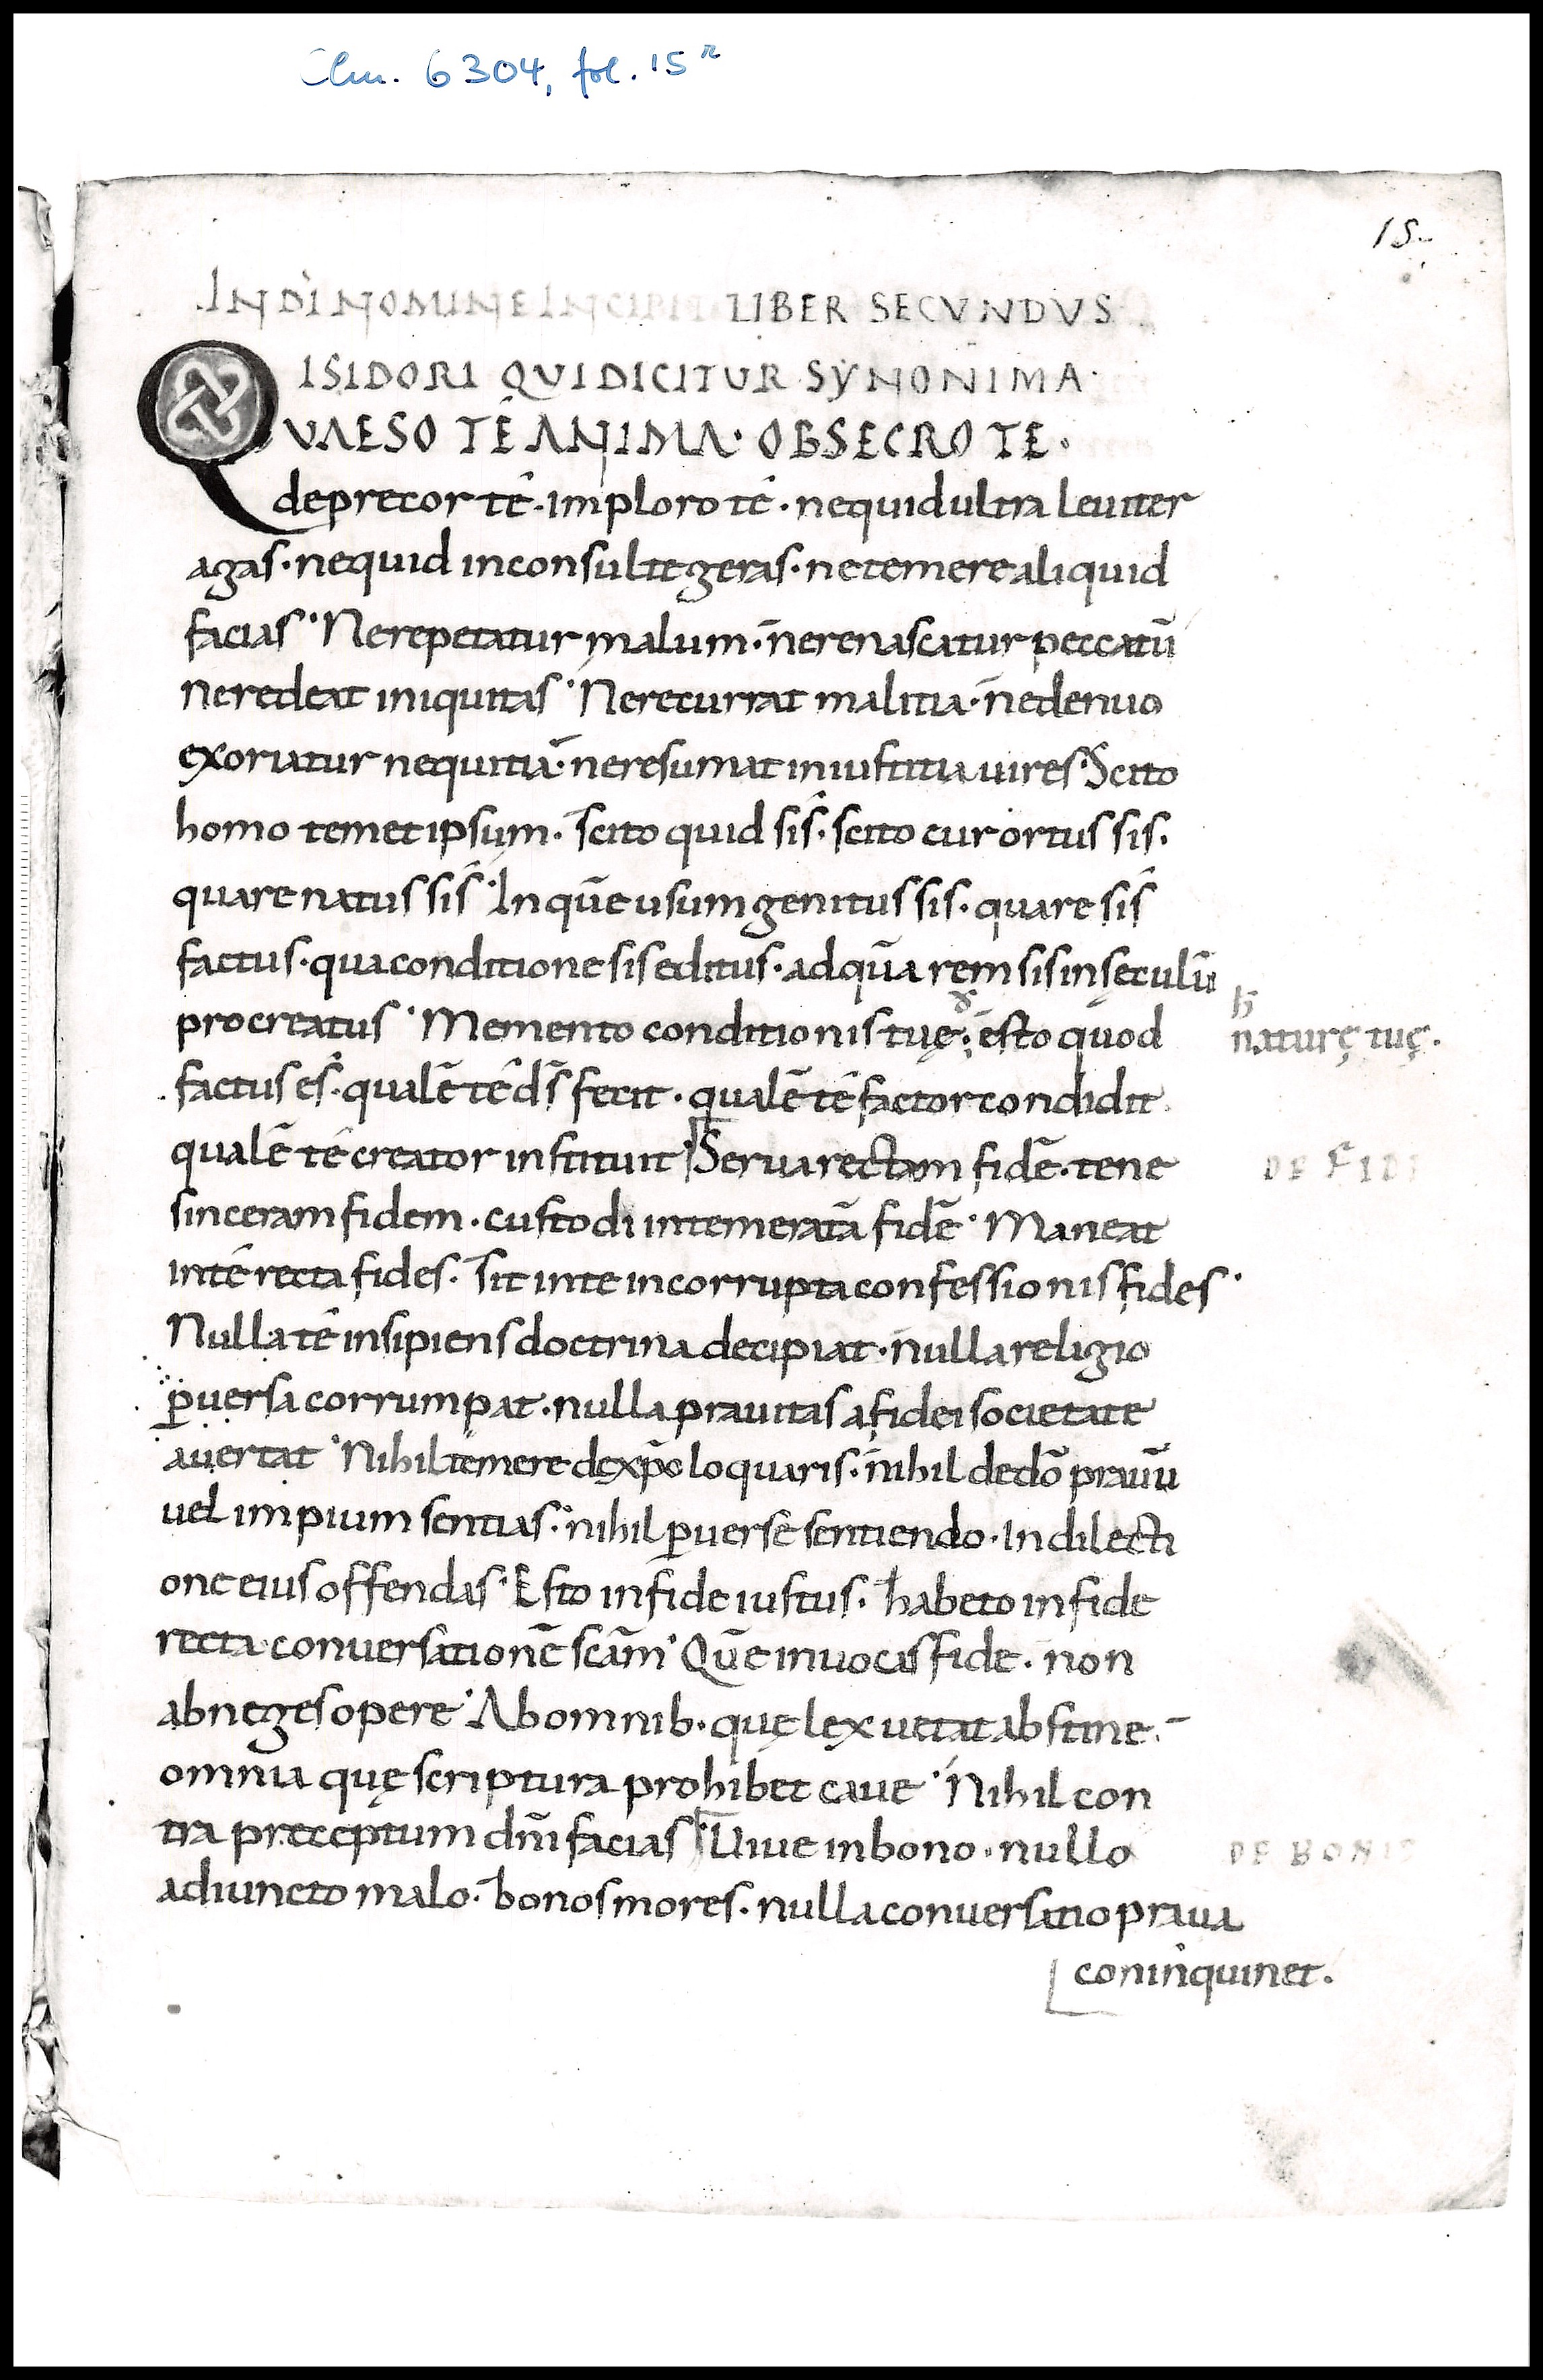 Clm. 6304, fol. 15r
15.
IN DI NOMINE INCIPIT LIBER SECVNDVS
ISIDORI QUI DICITUR SYNONIMA·
QVAESO TE ANIMA· OBSECRO TE·
deprecor te· imploro te· nequid ultra leuiter
agas· nequid inconsulte geras· ne temere aliquid
facias· Ne repetatur malum· ne renascatur peccatū
ne redeat iniquitas· Ne recurrat malitia· ne denuo
exoriatur nequitia· ne resumat iniustitia uires· Scito
homo temet ipsum· scito quid sis· scito cur ortus sis·
quare natus sis· In quē usum genitus sis· quare sis
factus· qua conditione sis editus· ad quā rem sis in sęculū
procreatus· Memento conditionis tuę· esto quod
h naturę tuę·
factus es· qualē te d̄s fecit· qualē te factor condidit
qualē te creator instituit· Serua rectam fidē· tene
DE FIDE
sinceram fidem· custodi intemeratā fidē· Maneat
in te recta fides· Sit in te incorrupta confessionis fides·
Nulla te insipiens doctrina decipiat· nulla religio
p̄uersa corrumpat· nulla prauitas a fidei societate
auertat· Nihil temere de xp̄o loquaris· nihil de dō prauū
uel impium sentias· nihil p̄uerse sentiendo· In dilecti
one eius offendas· Esto in fide iustus· habeto in fide
recta conuersationē scām· Quē inuocas fide· non
abneges opere· Ab omnib· quę lex uetat abstine·
omnia quę scriptura prohibet caue· Nihil con
tra preceptum dn̄i facias· Uiue in bono· nullo
DE BONIS
adiuncto malo· bonos mores· nulla conuersatio praua
coninquinet·